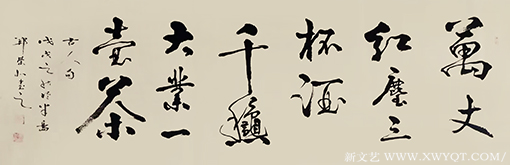 萬丈
红塵三
杯酒
千秋
大業一
壺茶
古人句
戊戌之
新文艺 WWW.XWYQT.COM